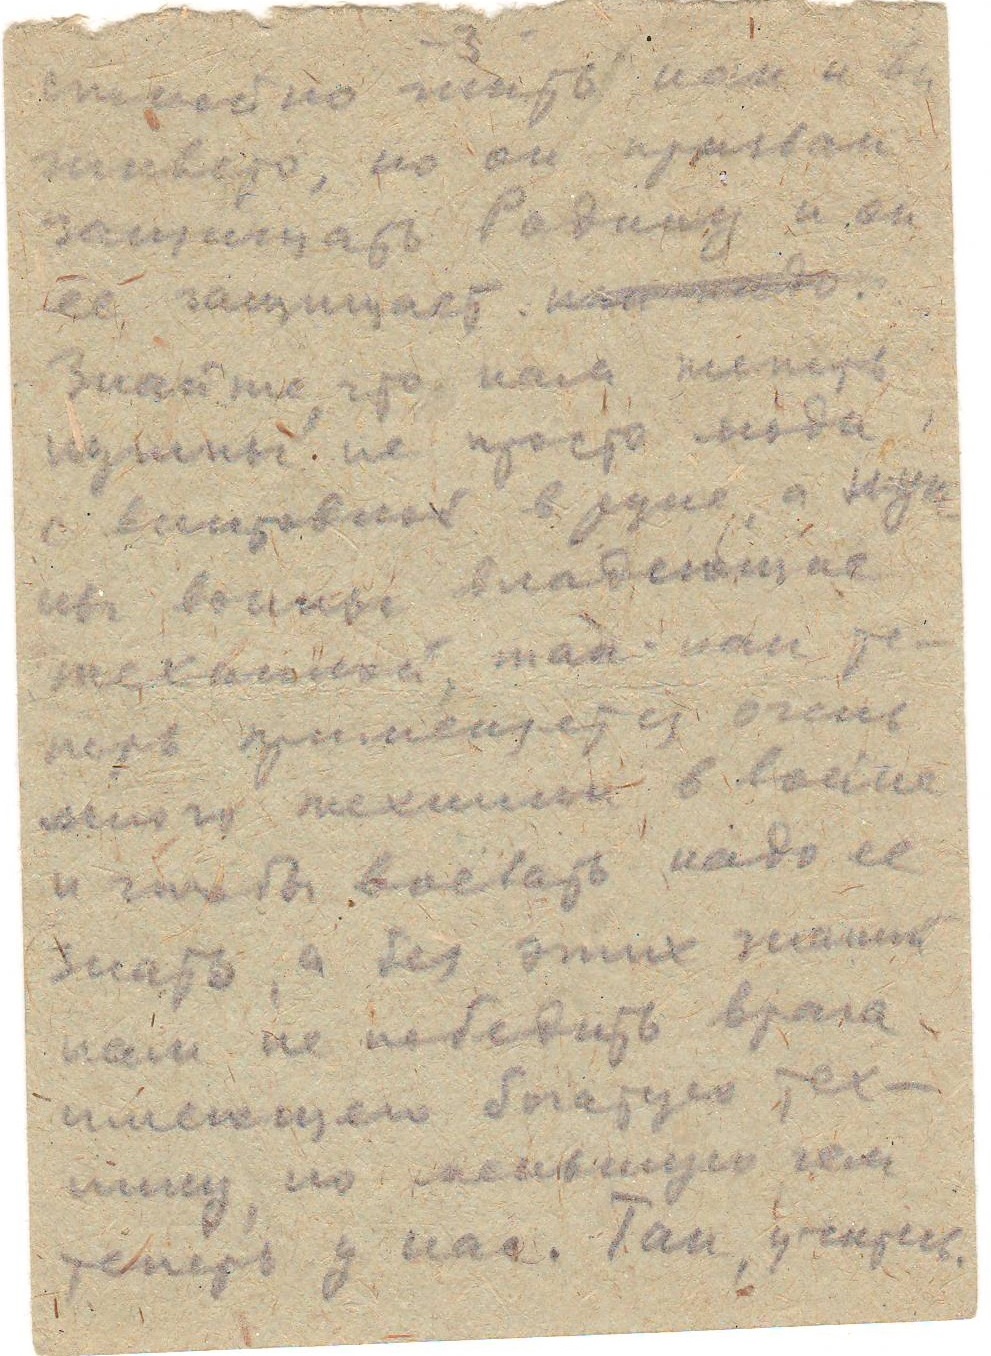 - 3 -
жить нам и вы
живёте, но он призван
защищать Родину и он
её защищает.
Знайте, что нам теперь
нужны не просто люди
с винтовкой в руке, а нуж
ны воины владеющие
техникой, так как те-
перь применяется очень
много техники в войне
и чтобы воевать надо ее
знать, а без этих знаний
нам не победить врага
имеющего богатую тех-
нику, но меньшую чем
теперь у нас. Так, учитесь.